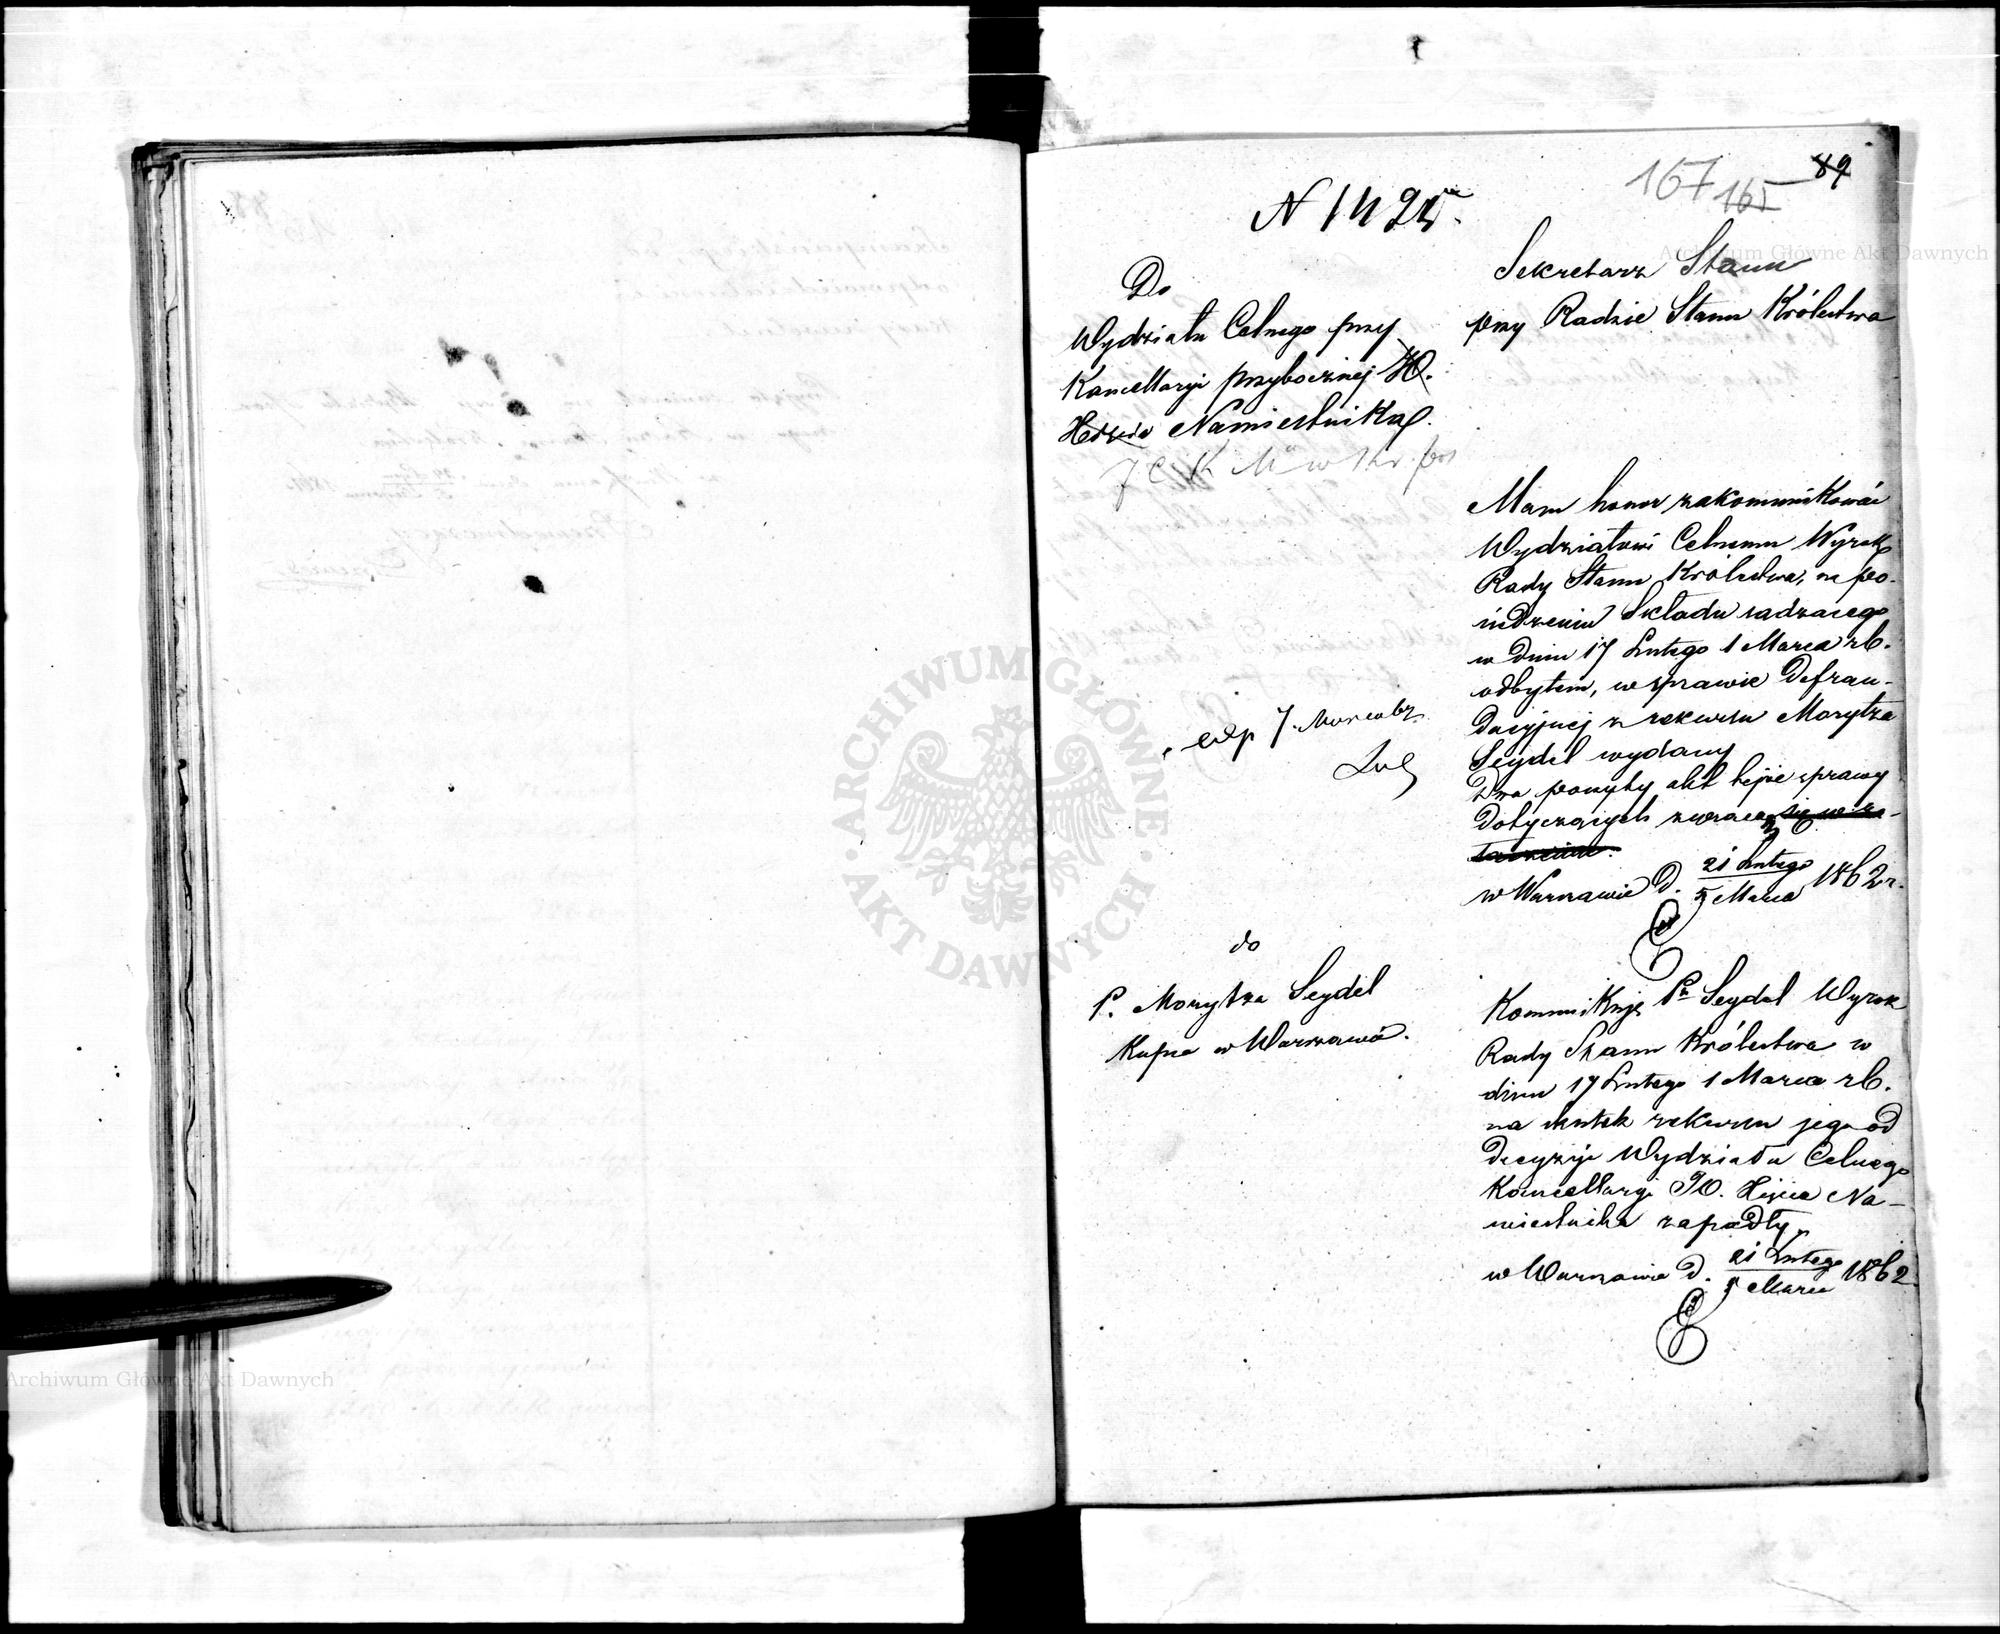 167 165 89
N 1425.
Do
Wydziału Celnego przy
Kancellaryi przybocznej JO.
Hrabia Namiestnika.
Sekretarz Stanu
przy Radzie Stanu Królestwa
Mam honor zakommunikować
Wydziałowi Celnemu Wyrok
Rady Stanu Królestwa, na po-
siedzeniu Składu sądzącego
w dniu 17 Lutego 1 Marca rb.
odbytem, w sprawie defrau-
dacyjnej z rekursu Morytza
Seydel wydany
Dwa poszyty akt tejże sprawy
dotyczących zwraca
w Warszawie d. 21 Lutego 5 Marca 1862 r.
exp 7. Marca br.
do
P. Morytza Seydel
Kupca w Warszawie.
Kommunikuję Pu Seydel Wyrok
Rady Stanu Królestwa w
dniu 17 Lutego 1 Marca rb.
na skutek rekursu jego od
decyzyi Wydziału Celnego
Kancellaryi JO. Xięcia Na-
miestnika zapadły.
w Warszawie d. 21 Lutego 5 Marca 1862
ARCHIWUM GŁÓWNE
AKT DAWNYCH
Archiwum Główne Akt Dawnych
Archiwum Główne Akt Dawnych